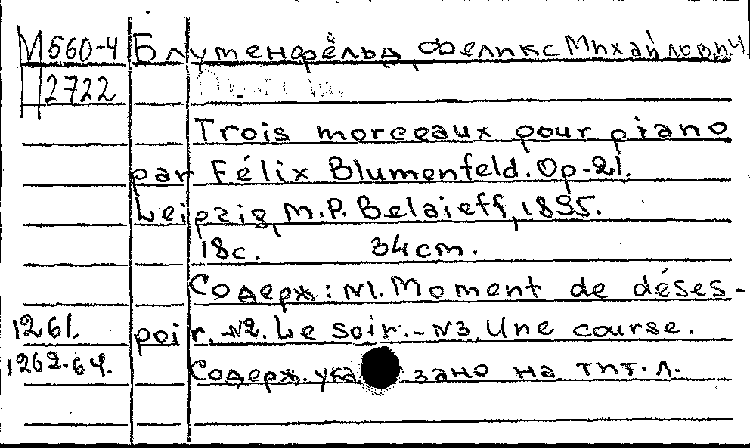 М560-4 Блуменфельд, Феликс Михайлович
Н2722
Trois morceaux pour piano
par Félix Blumenfeld. Op-21.
Leipzig, M.P. Belaieff, 1895.
18с. 34cm.
Содерж: N1. Moment de déses-
1261. poir.-N2. Le soir.-N3. Une course.
1262-64. Содерж. указано на тит. л.